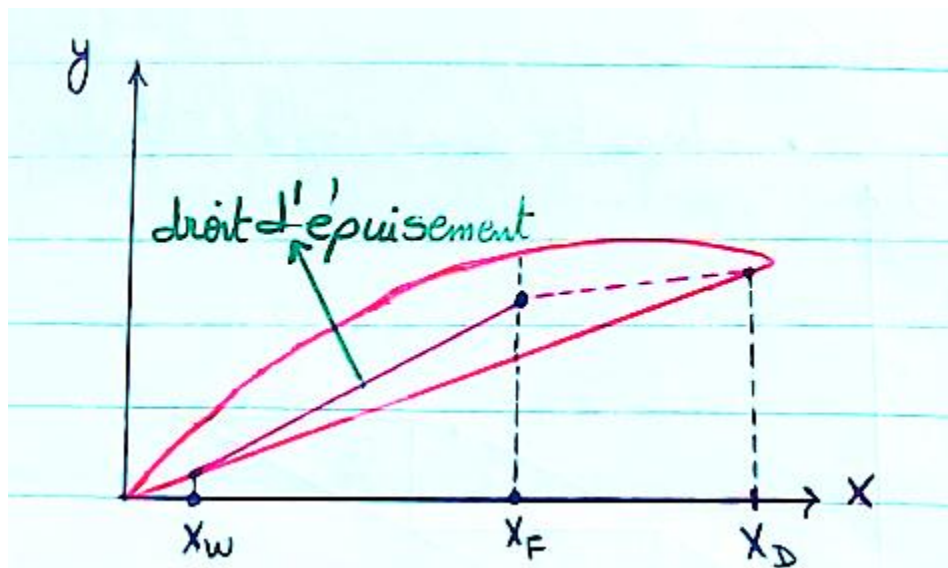 y
droit d'épuisement
X
XW
XF
XD